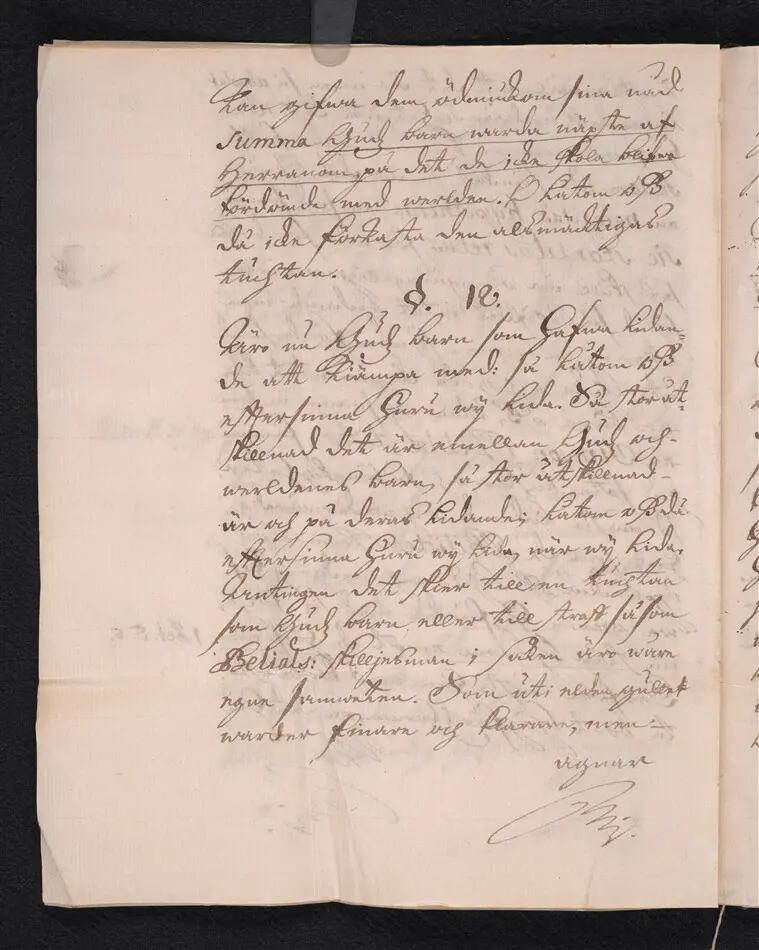 Kan gifwa dem ödmiukom sina nåd
summa Gudz barn warda näpste af
Herranom på det de icke skola blifwa
fördömde med werlden. Låtom oß
då icke förkasta den alsmächtigas
tuchtan.
§. 18.
Äro nu Gudz barn som hafwa lidan=
de att kiämpa med: så låtom oß
efftersinna huru wy lida. Så stor åt-
skillnad det är emellan Gudz och
werldenes barn, så stor åtskillnad
är och på deras lidande; Låtom oß då
efftersinna huru wy lida, när wy lida.
Antingen det skier till en tuchtan
som Gudz barn eller till straff såsom
Belials: skilljesman i saken äro wåre
egne samweten. Som uti elden gullet
warder finare och klarare, men
agnar